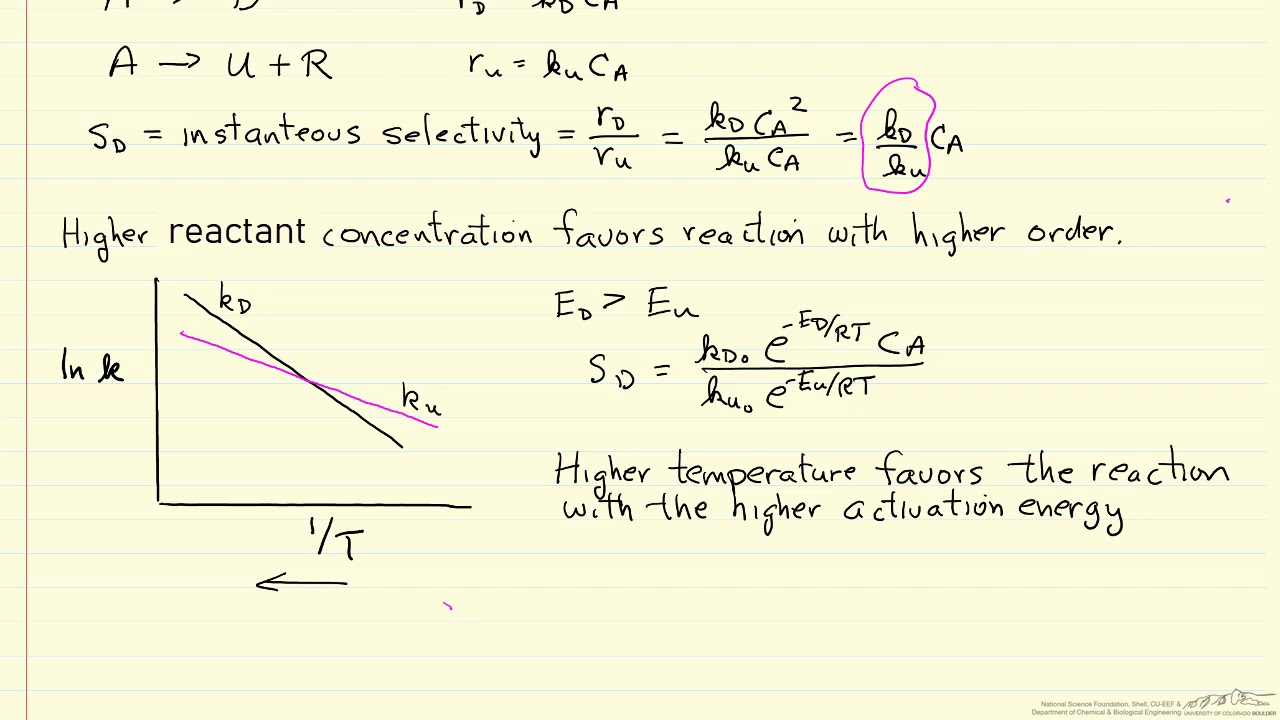 A → U + R r_u = k_u C_A
S_D = instanteous selectivity = r_D / r_u = k_D C_A² / k_u C_A = k_D / k_u C_A
Higher reactant concentration favors reaction with higher order.
k_D
ln k
k_u
1/T
←
E_D > E_u
S_D = k_D₀ e^(-E_D/RT) C_A / k_u₀ e^(-E_u/RT)
Higher temperature favors the reaction
with the higher activation energy
National Science Foundation, Shell, CU-EEF &
Department of Chemical & Biological Engineering UNIVERSITY OF COLORADO BOULDER